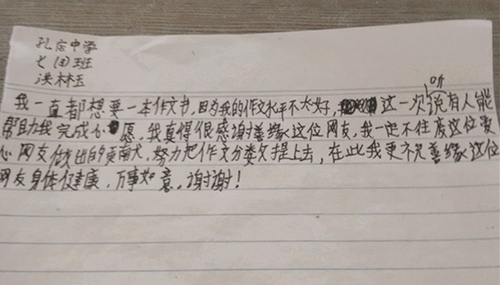 孔店中学
七(四)班
洪林玉
我一直都想要一本作文书,因为我的作文水平不太好,这一次听说有人能
帮助我完成心愿,我真得很感谢善缘这位网友,我一定不住废这位爱
心网友做出的贡献,努力把作文分数提上去,在此我更祝善缘这位
网友身体健康,万事如意,谢谢!